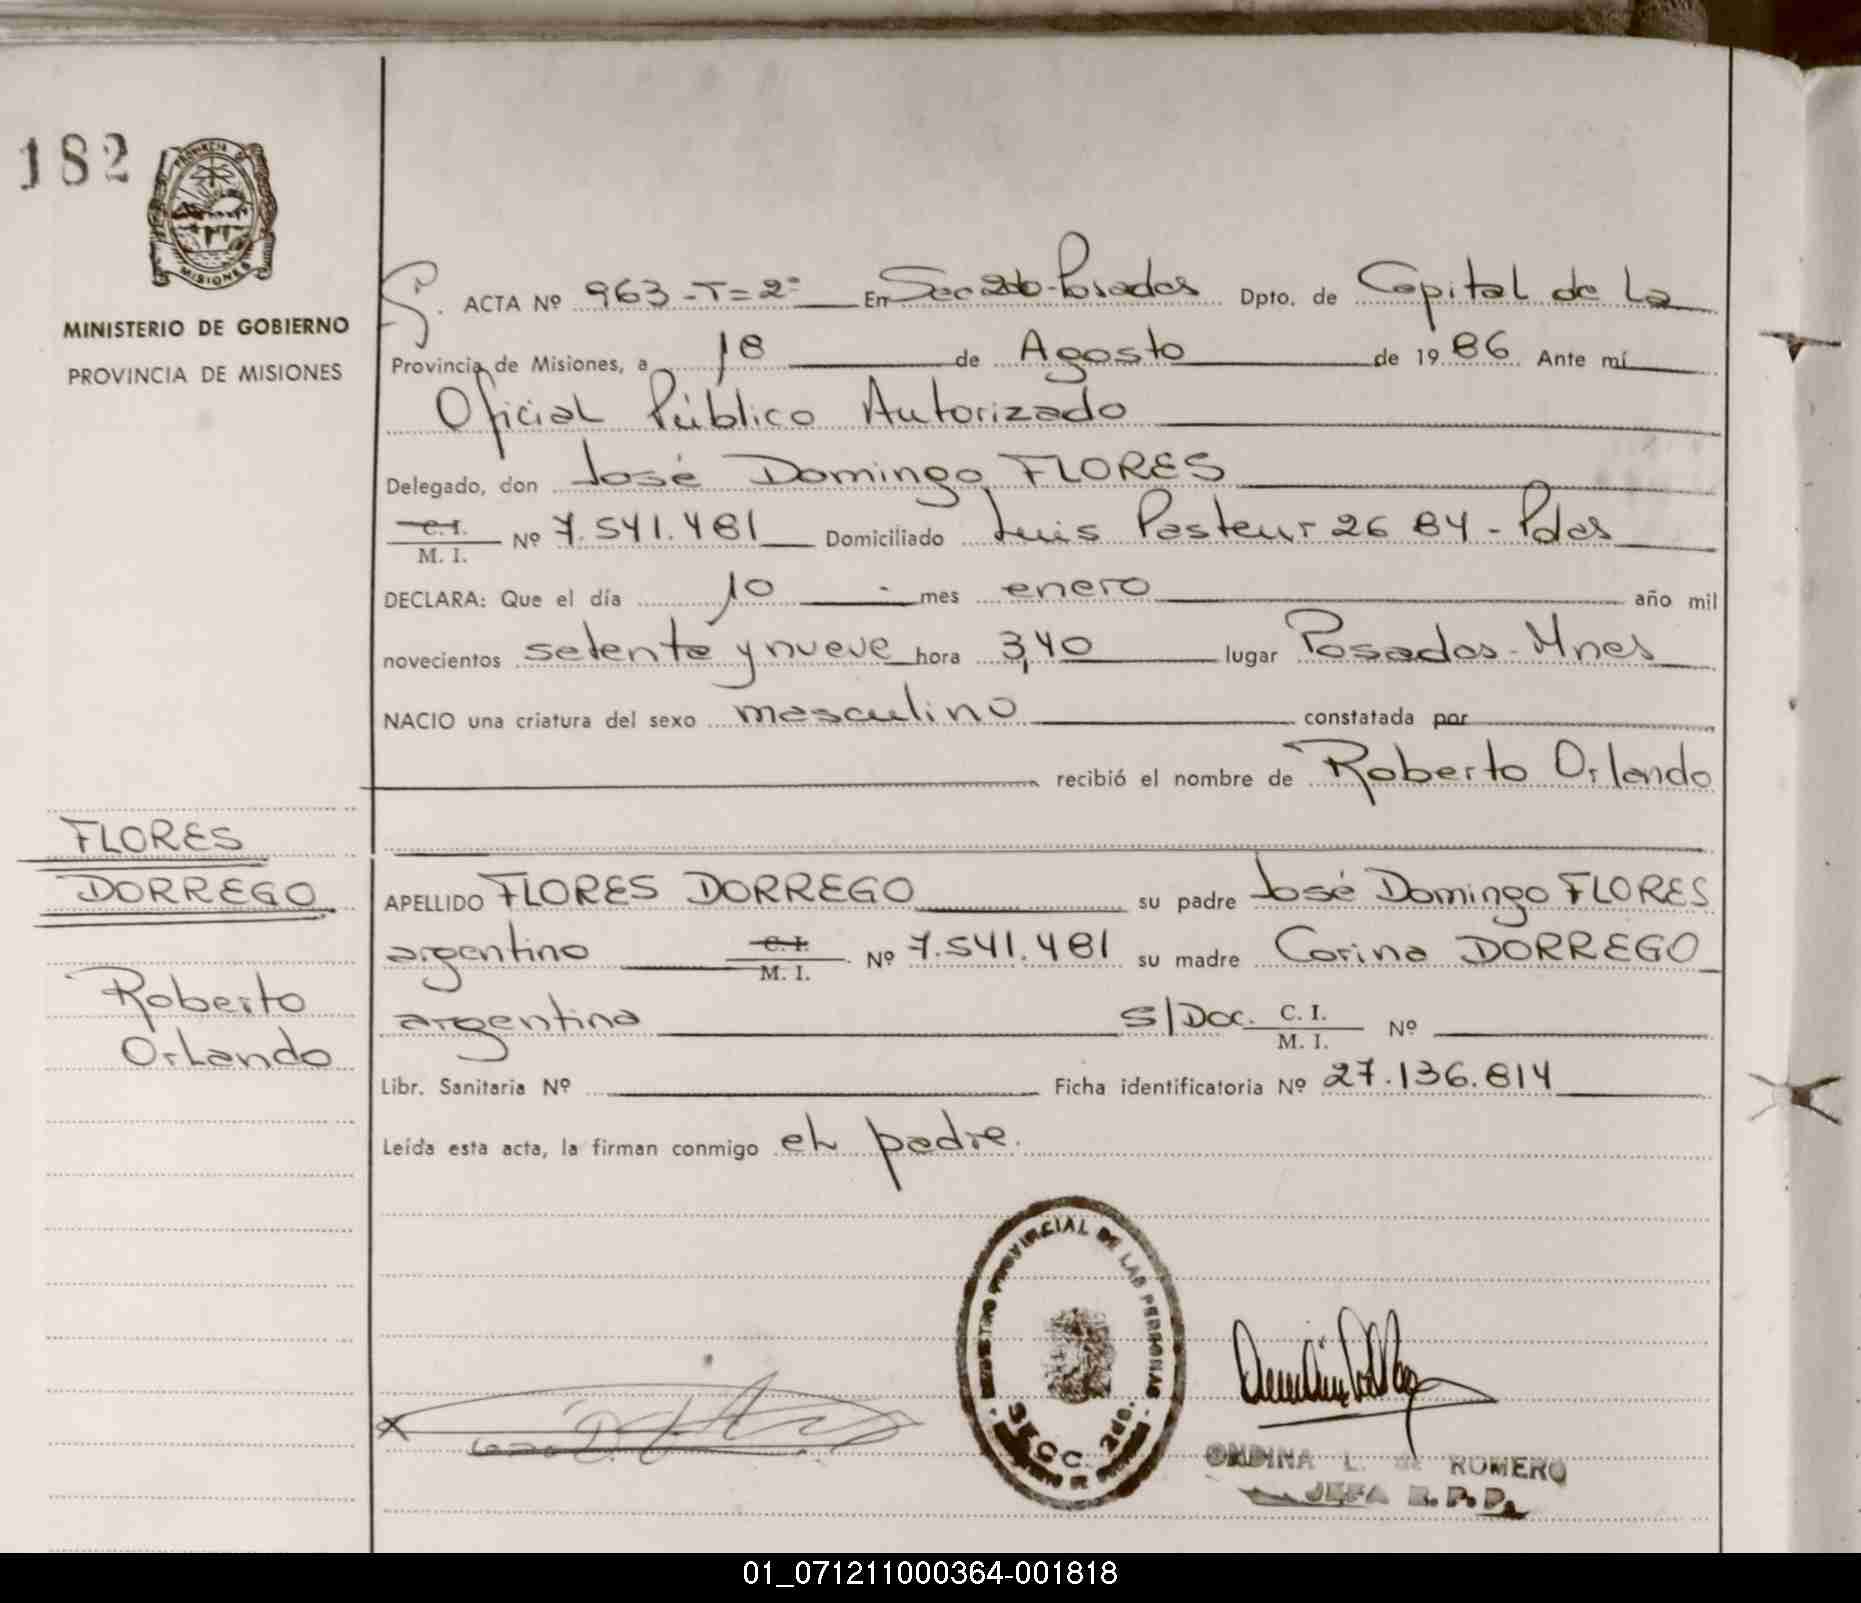 182
PROVINCIA DE
MISIONES
MINISTERIO DE GOBIERNO
PROVINCIA DE MISIONES
ACTA Nº 963-T=2º En Secc 2da-Posadas Dpto. de Capital de La
Provincia de Misiones, a 18 de Agosto de 1986 Ante mí
Oficial Público Autorizado
Delegado, don José Domingo FLORES
C.I.
M. I. Nº 7.541.481 Domiciliado Luis Pasteur 2684 - Pdas
DECLARA: Que el día 10 mes enero año mil
novecientos setenta y nueve hora 3,40 lugar Posadas-Mnes
NACIO una criatura del sexo masculino constatada por
recibió el nombre de Roberto Orlando
FLORES
DORREGO
Roberto
Orlando
APELLIDO FLORES DORREGO su padre José Domingo FLORES
argentino C.I.
M. I. Nº 7.541.481 su madre Corina DORREGO
argentina S/Doc. C. I.
M. I. Nº
Libr. Sanitaria Nº Ficha identificatoria Nº 27.136.814
Leída esta acta, la firman conmigo el padre.
REGISTRO PROVINCIAL DE LAS PERSONAS
SECC. 2da.
ONDINA L. de ROMERO
JEFA R.P.P.
01_071211000364-001818